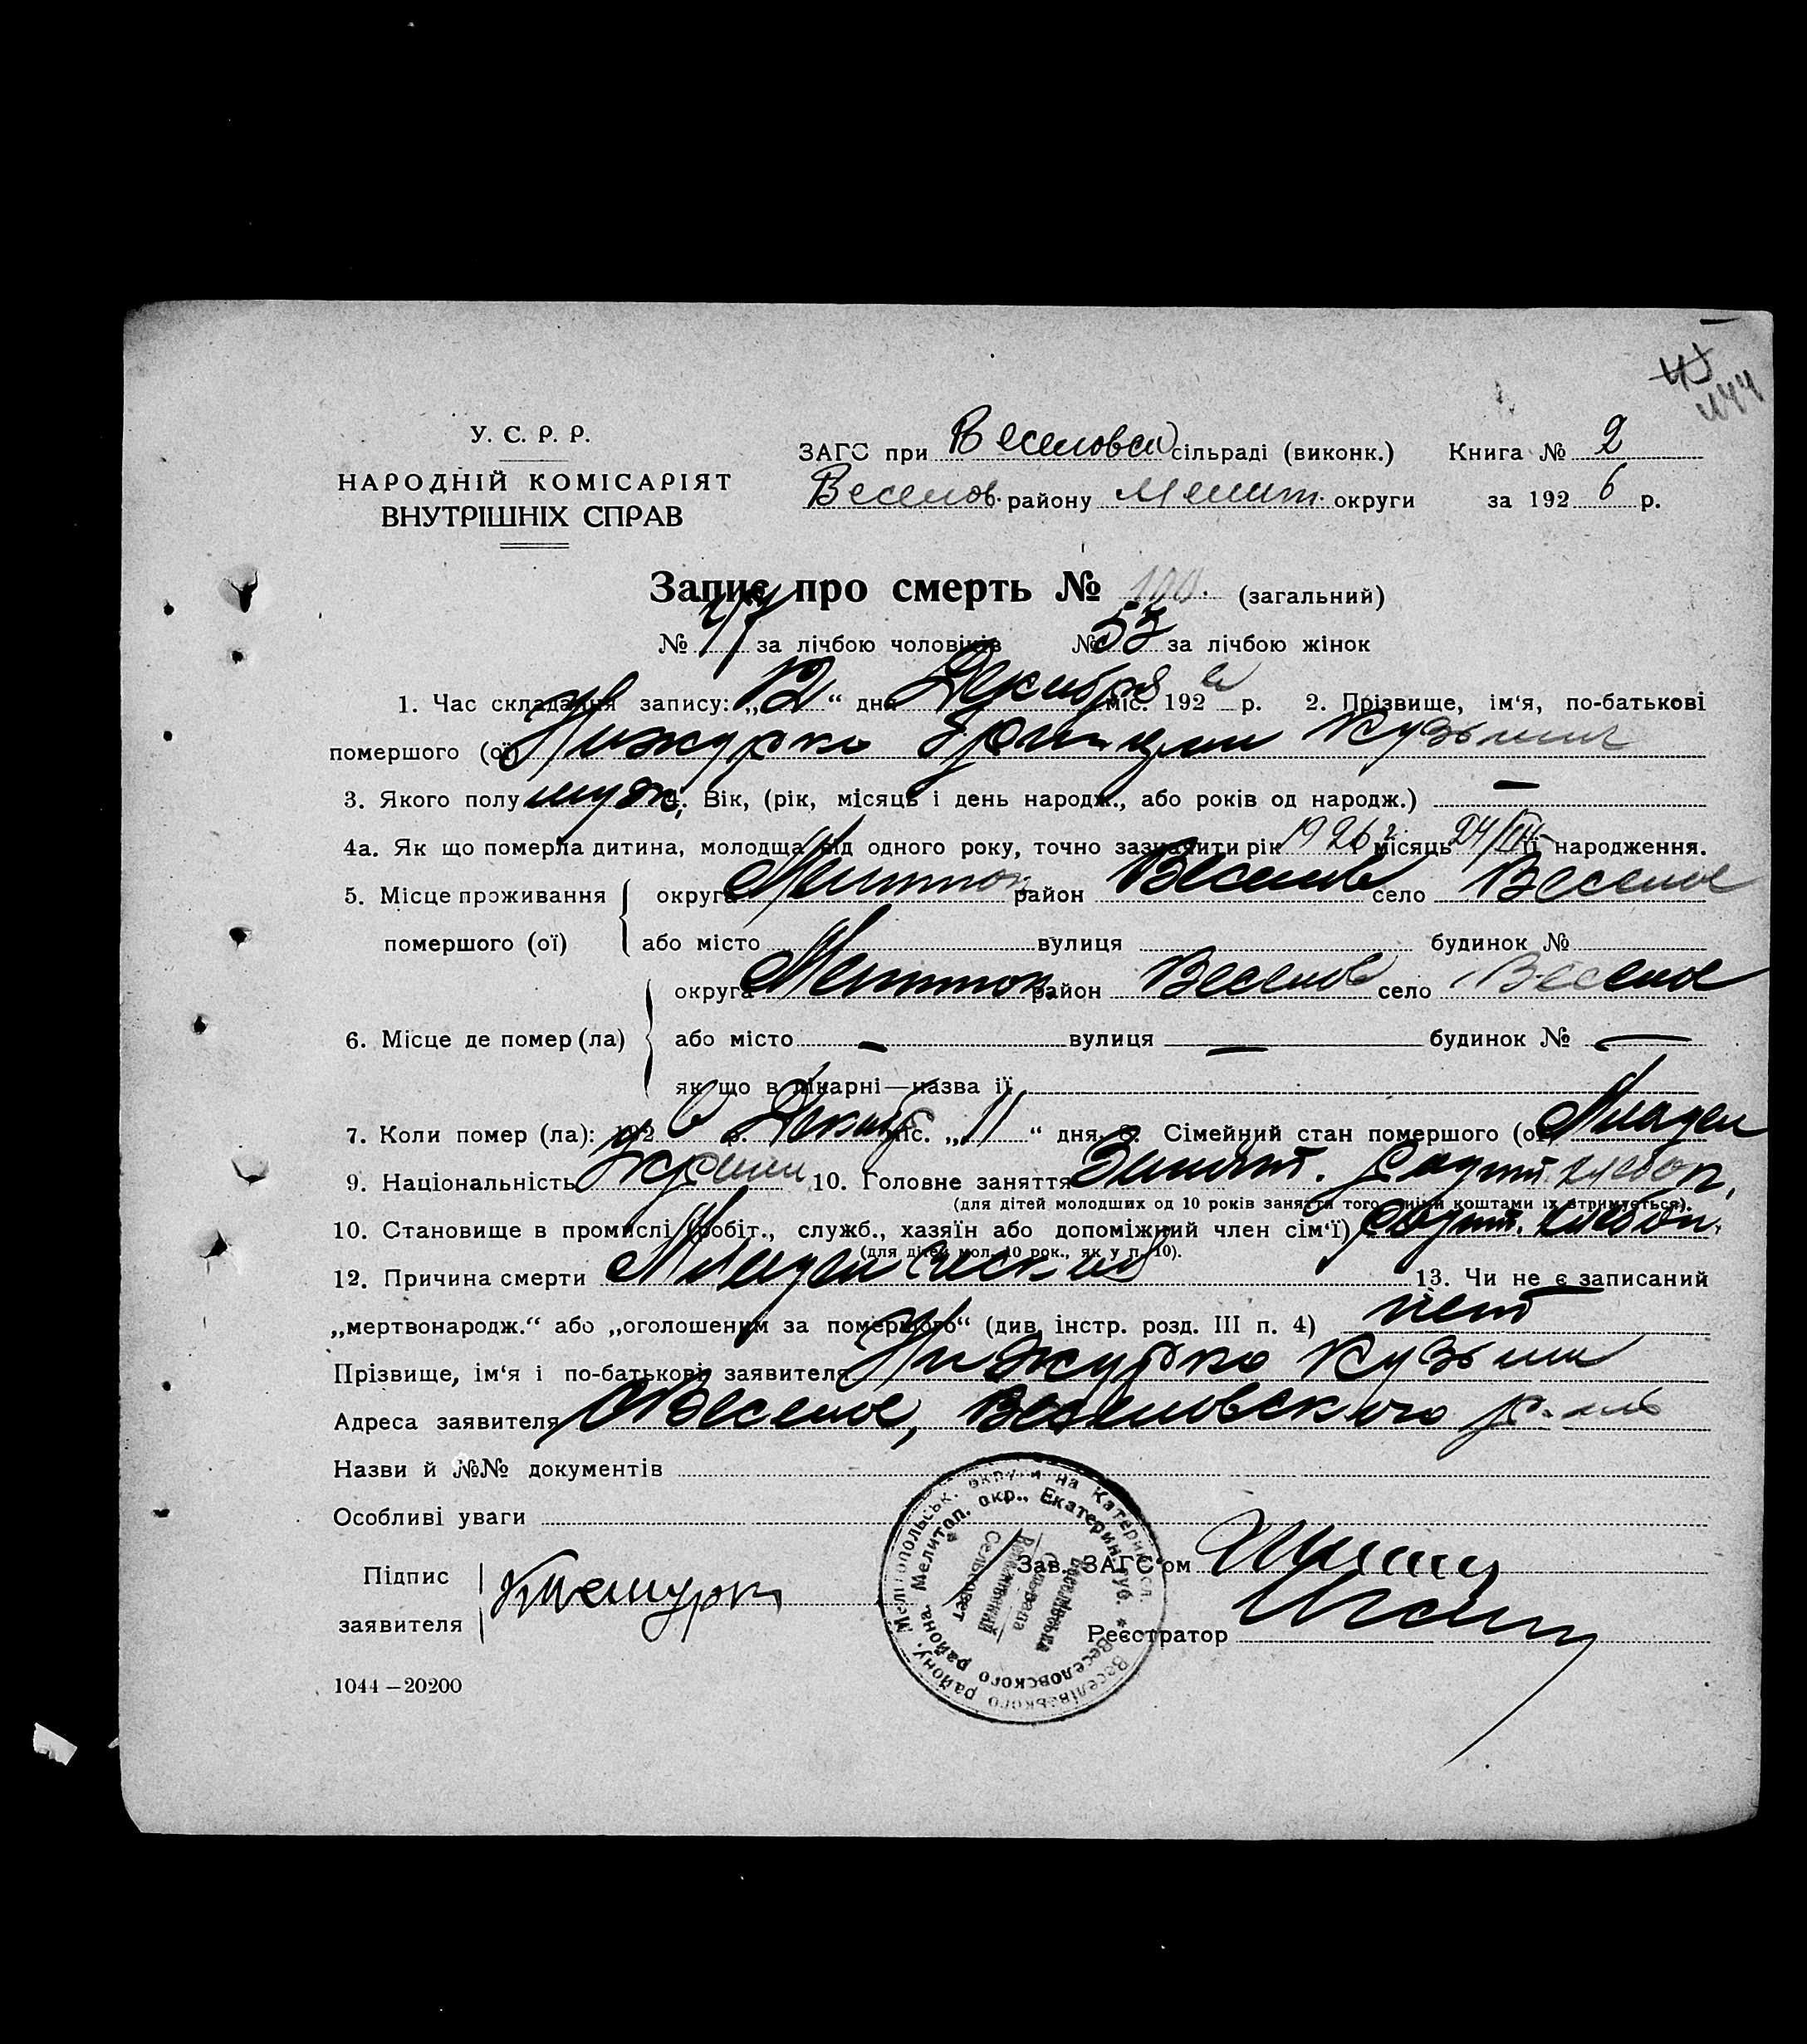 У. С. Р. Р.
НАРОДНІЙ КОМІСАРІЯТ
ВНУТРІШНІХ СПРАВ
ЗАГС при Веселовск сільраді (виконк.) Книга № 2
Веселов. району Мелит. округи за 1926 р.
Запис про смерть № 100. (загальний)
№ 47 за лічбою чоловіків № 53 за лічбою жінок
1. Час складання запису: „12“ дня Декабря міс. 1926 р. 2. Прізвище, ім‘я, по-батькові
помершого (ої) Кузьмич
3. Якого полу муж. 4. Вік, (рік, місяць і день народж., або років од народж.) —
4а. Як що померла дитина, молодша від одного року, точно зазначити рік 1926 г. місяць 24/III її народження.
5. Місце проживання помершого (ої) округа Мелитоп район Веселов село Веселое
або місто вулиця будинок №
6. Місце де помер (ла) округа Мелитоп район Веселов село Веселое
або місто — вулиця — будинок № —
як що в лікарні—назва її
7. Коли помер (ла): 1926 р. Декаб міс. „11“ дня. 8. Сімейний стан помершого (ої) Младен
9. Національність Украин 10. Головне заняття хлебоп.
(для дітей молодших од 10 років заняття того, чиїми коштами їх втримується).
10. Становище в промислі (робіт., служб., хазяїн або допоміжний член сім‘ї) хлебоп.
(для дітей мол. 10 рок., як у п. 10).
12. Причина смерти Младенческая 13. Чи не є записаний
„мертвонародж.“ або „оголошеним за помершого“ (див. інстр. розд. III п. 4) нет
Прізвище, ім‘я і по-батькові заявителя Кузьма
Адреса заявителя с Веселое, Веселовского р-на
Назви й №№ документів
Особливі уваги
Підпис
заявителя
Зав. ЗАГС‘ом
Реєстратор
Веселівського району, Мелітопольськ. округи на Катеринослав.
Веселовского района, Мелитоп. окр., Екатерин. губ.
Веселівська
Сільрада
Веселовский
Сельсовет
1044—20200